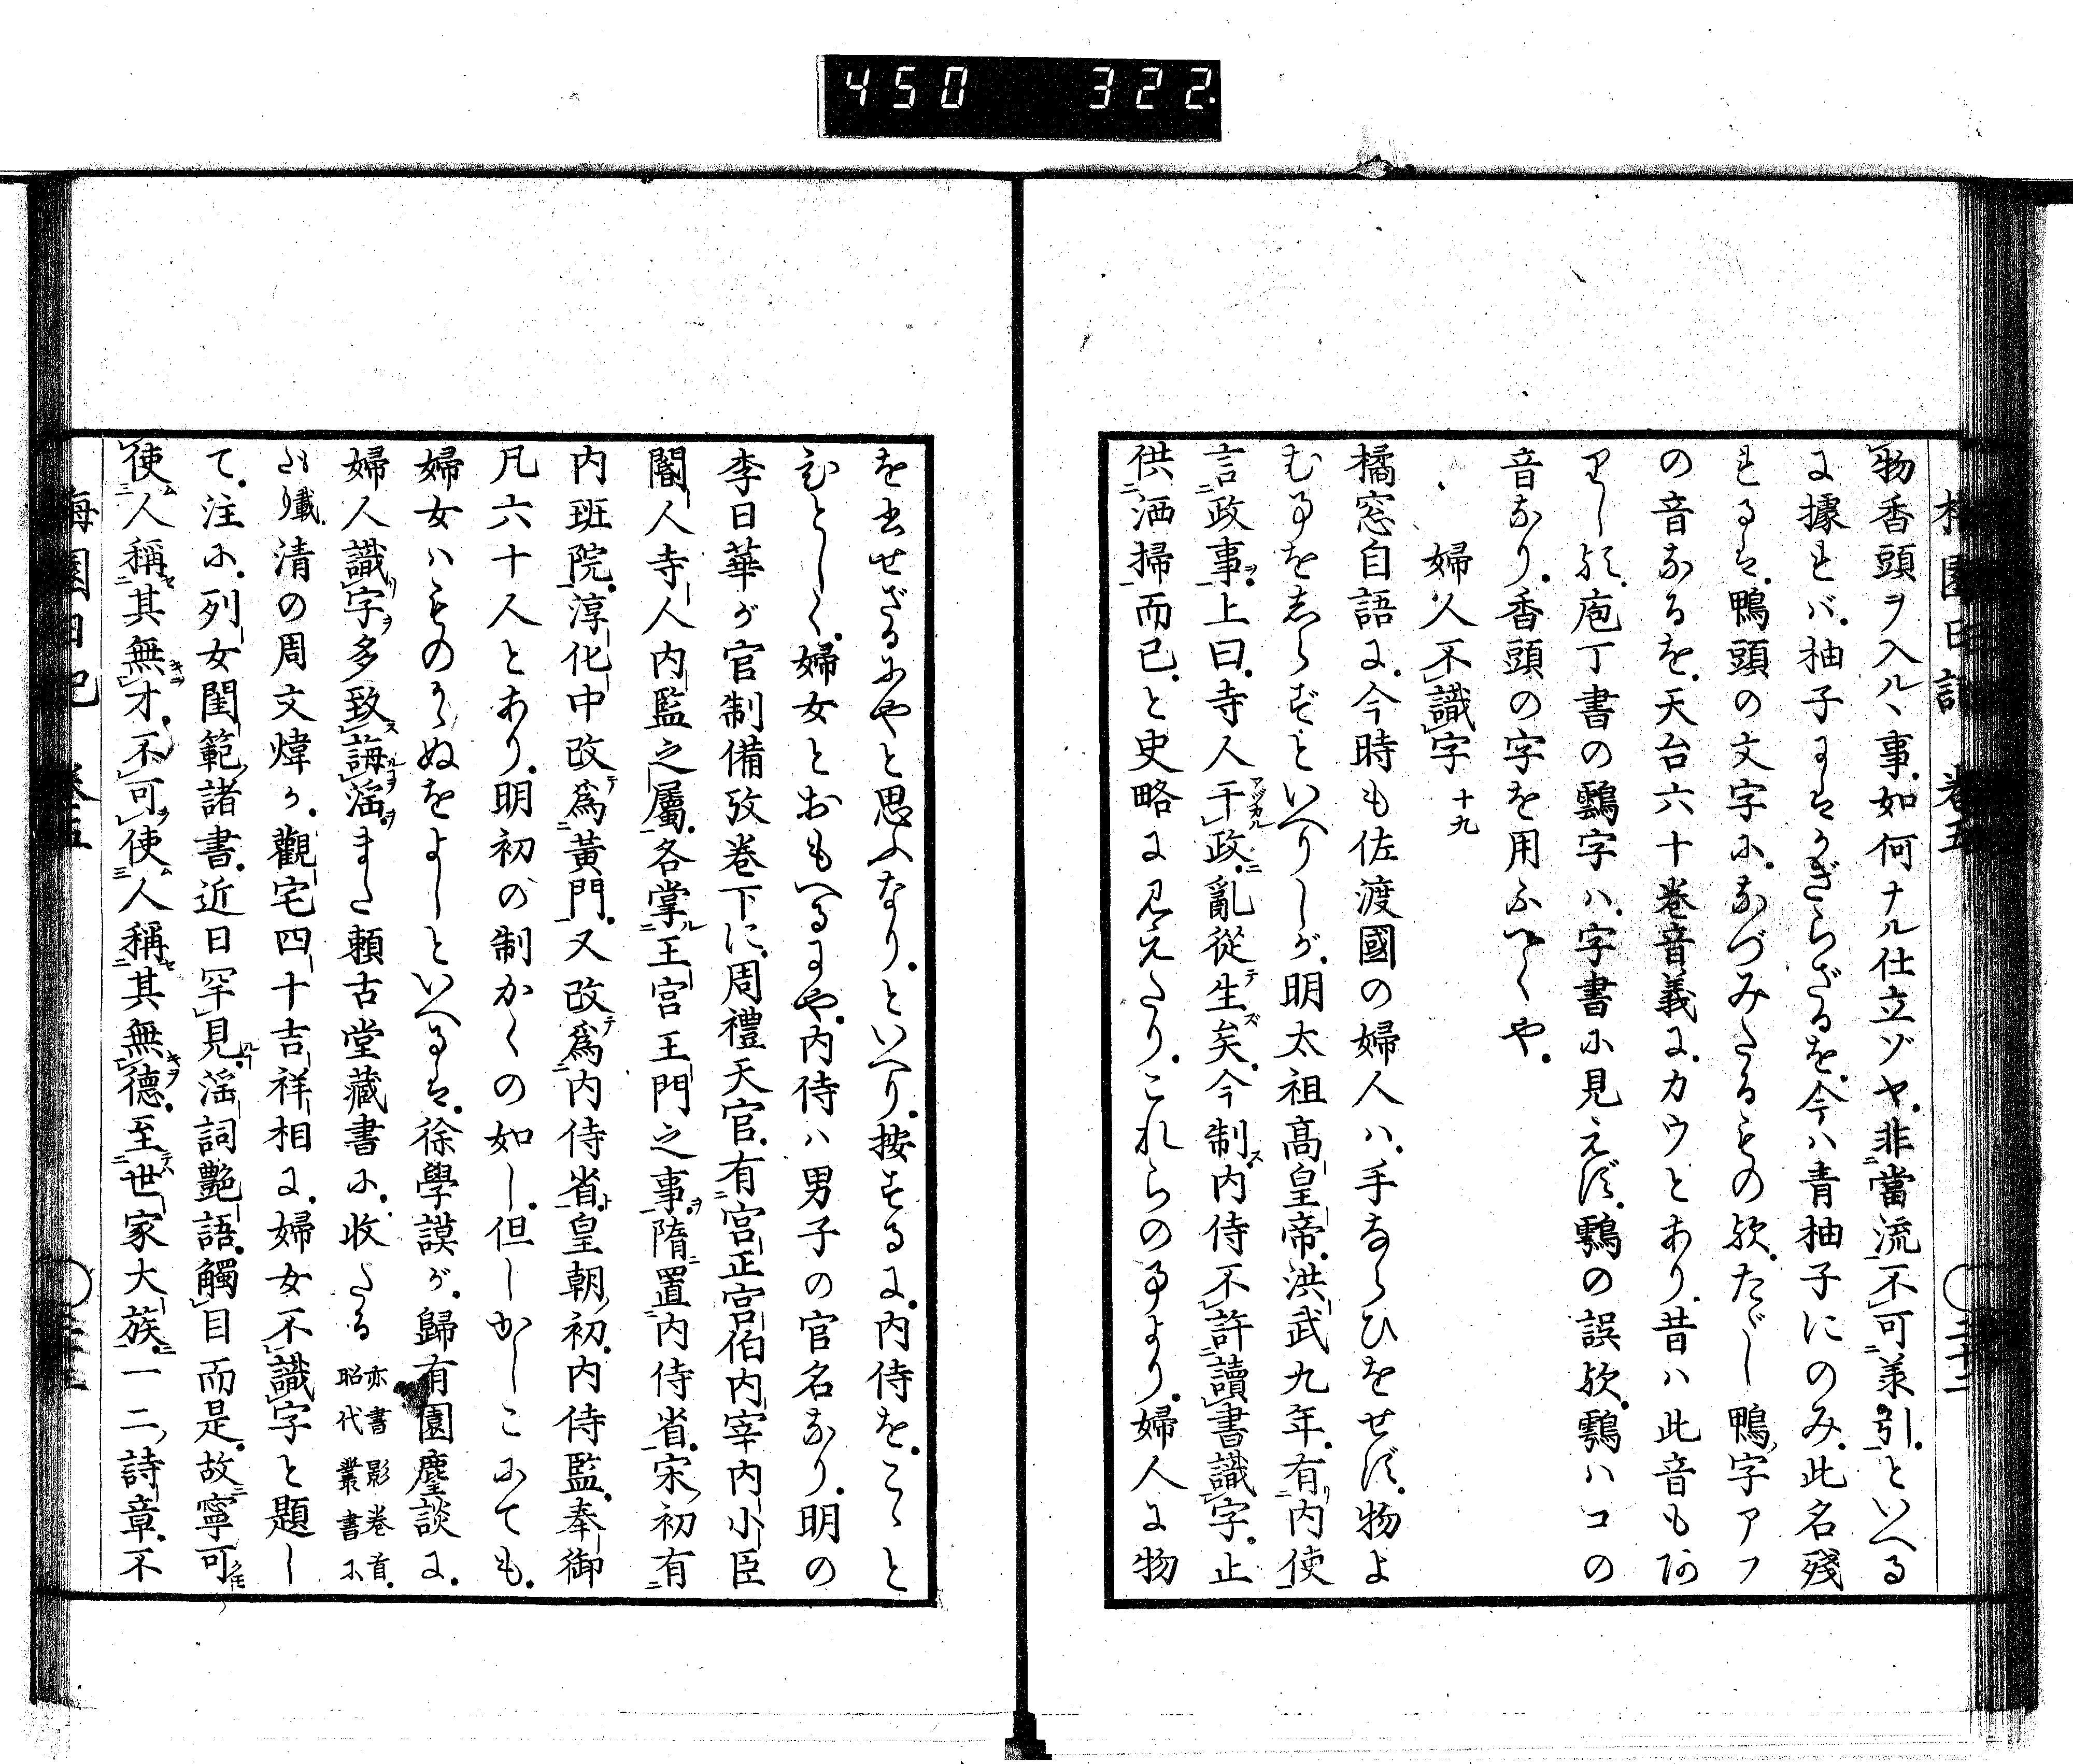 450 322
梅園日記 卷五 〇二十二
物香頭ヲ入ル丶事如何ナル仕立ゾヤ非當流不可羕引といへる
に據れバ柚子にはかぎらざるを今ハ青柚子にのみ此名殘
れるは鴨頭の文字になづみたるもの歟たゞし鴨字アフ
の音なるを天台六十卷音義にカウとあり昔ハ此音も阿
りし歟庖丁書の鷣字ハ字書に見えず鷣の誤歟鷣ハコの
音なり香頭の字を用ふべくや
婦人不識字 十九
橘窓自語に今時も佐渡國の婦人ハ手ならひをせず物よ
む事をしらずといへりしが明太祖高皇帝洪武九年有内使
言政事上曰寺人干政亂從生矣今制内侍不許讀書識字止
供洒掃而已と史略に見えたりこれらの事より婦人に物
を書せざるにやと思ふなりといへり按ずるに内侍をこゝと
ひとしく婦女とおもへるにや内侍ハ男子の官名なり明の
李日華が官制備攷卷下に周禮天官有宮正宮伯内宰内小臣
閽人寺人内監之屬各掌王宮王門之事隋置内侍省宋初有
内班院淳化中改爲黄門又改爲内侍省皇朝初内侍監奉御
凡六十人とあり明初の制かくの如し但しかしこにても
婦女ハものかゝぬをよしといへるは徐學謨が歸有園麈談に
婦人識字多致誨淫また賴古堂藏書に收たる 亦書影卷首 昭代叢書に
も載 清の周文煒が觀宅四十吉祥相に婦女不識字と題し
て注に列女閨範諸書近日罕見淫詞艷語觸目而是故寧可
使人稱其無才不可使人稱其無德至世家大族一二詩章不
梅園日記 卷五